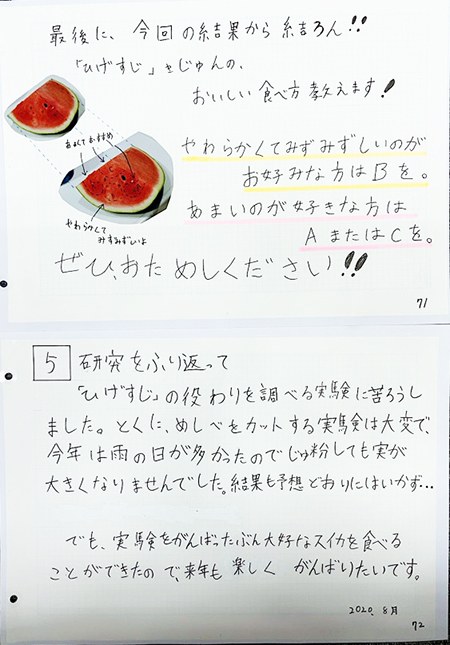 最後に、今回の結果から結ろん!!
「ひげすじ」きじゅんの、
おいしい食べ方教えます!
やわらかくてみずみずしいのが
お好みな方はBを。
あまいのが好きな方は
AまたはCを。
あまくておすすめ
やわらかくて
みずみずしいよ
ぜひ、おためしください!!
71
5 研究をふり返って
「ひげすじ」の役わりを調べる実験に苦ろうし
ました。とくに、めしべをカットする実験は大変で、
今年は雨の日が多かったのでじゅ粉しても実が
大きくなりませんでした。結果も予想どおりにはいかず…
でも、実験をがんばったぶん大好なスイカを食べる
ことができたので、来年も楽しくがんばりたいです。
2020.8月
72